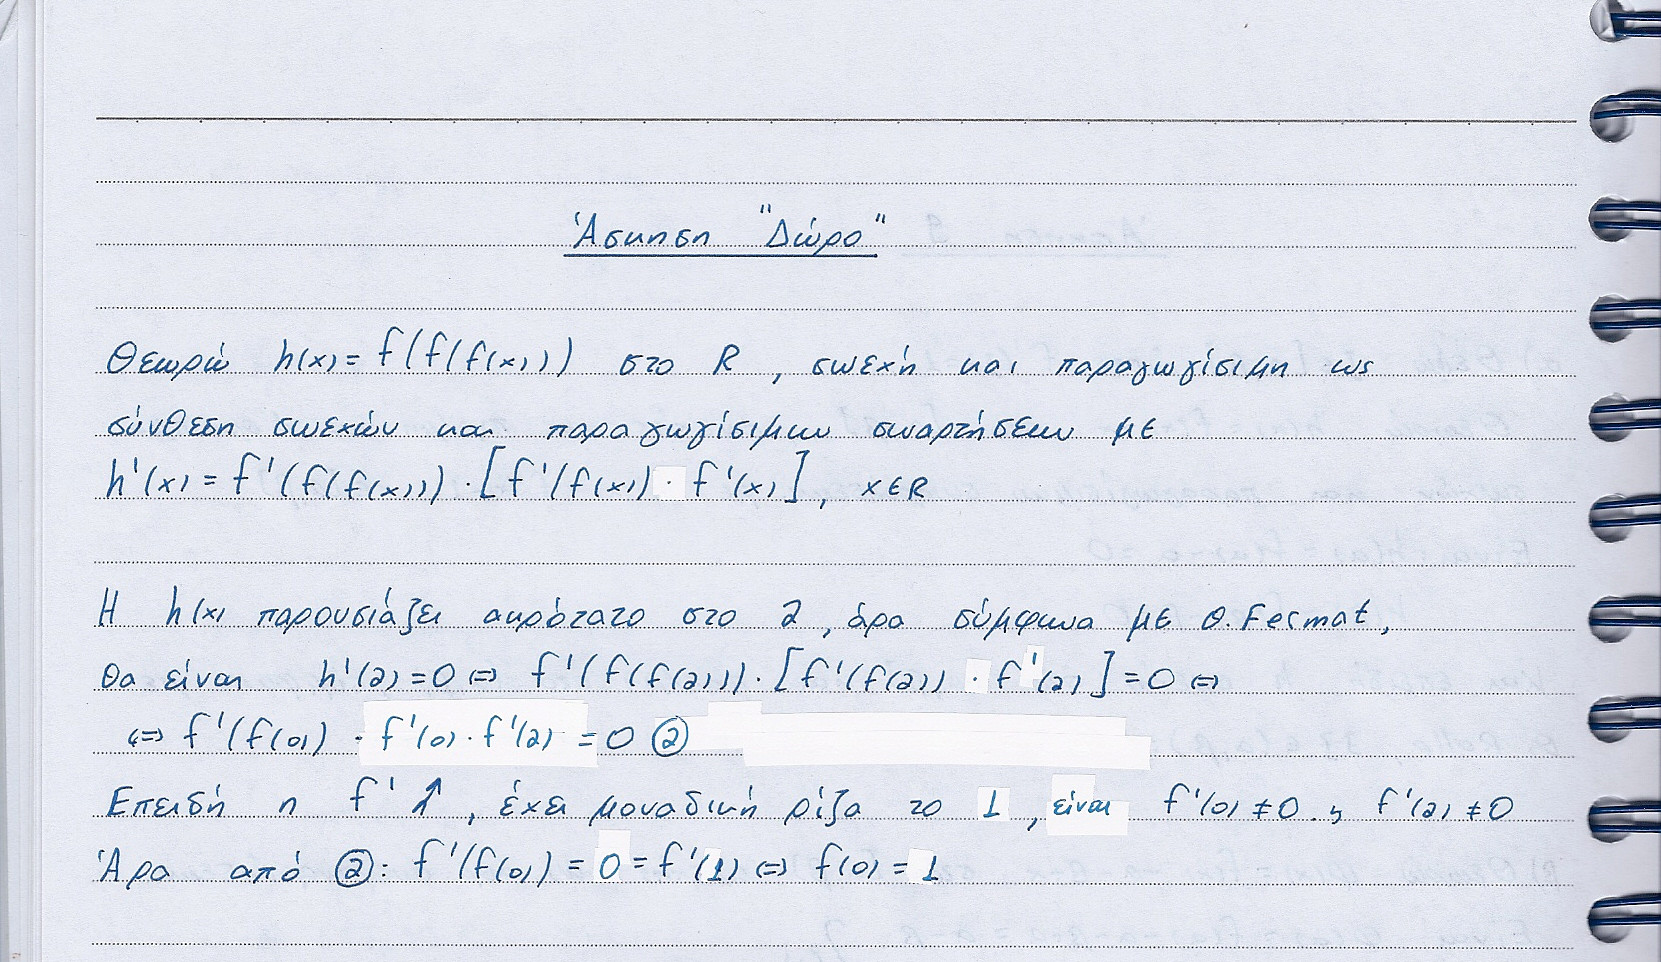 Άσκηση "Δώρο"
Θεωρώ h(x) = f(f(f(x))) στο R, συνεχή και παραγωγίσιμη ως
σύνθεση συνεχών και παραγωγίσιμων συναρτήσεων με
h'(x) = f'(f(f(x))) · [f'(f(x)) · f'(x)], x∈R
Η h(x) παρουσιάζει ακρότατο στο 2, άρα σύμφωνα με Θ. Fermat,
θα είναι h'(2)=0 ⇔ f'(f(f(2))) · [f'(f(2)) · f'(2)] = 0 ⇔
⇔ f'(f(0)) · f'(0) · f'(2) = 0 ②
Επειδή η f' ↑, έχει μοναδική ρίζα το 1, είναι f'(0) ≠ 0 , f'(2) ≠ 0
Άρα από ②: f'(f(0)) = 0 = f'(1) ⇔ f(0) = 1